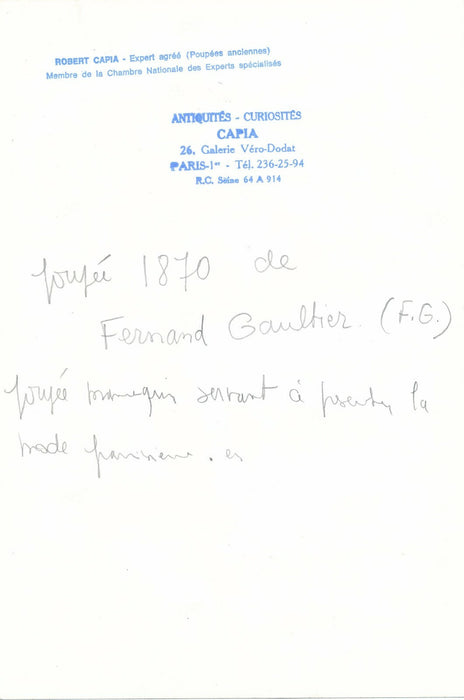 ROBERT CAPIA - Expert agréé (Poupées anciennes)
Membre de la Chambre Nationale des Experts spécialisés
ANTIQUITÉS - CURIOSITÉS
CAPIA
26, Galerie Véro-Dodat
PARIS-1er - Tél. 236-25-94
R.C. Seine 64 A 914
poupée 1870 de
Fernand Gaultier. (F.G.)
poupée mannequin servant à présenter la
mode parisienne. en